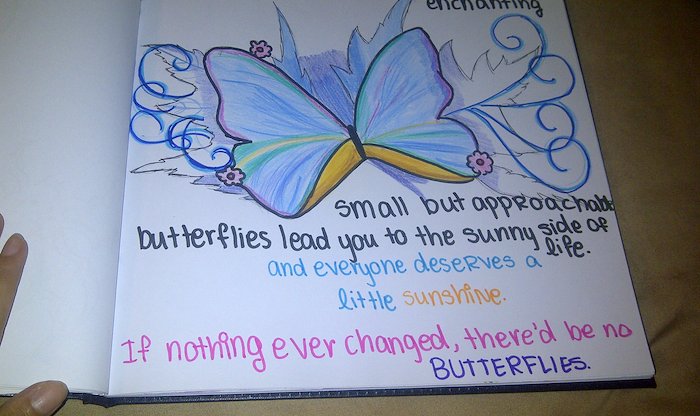 enchanting
small but approachable
butterflies lead you to the sunny side of
life.
and everyone deserves a
little sunshine.
If nothing ever changed, there'd be no
BUTTERFLIES.